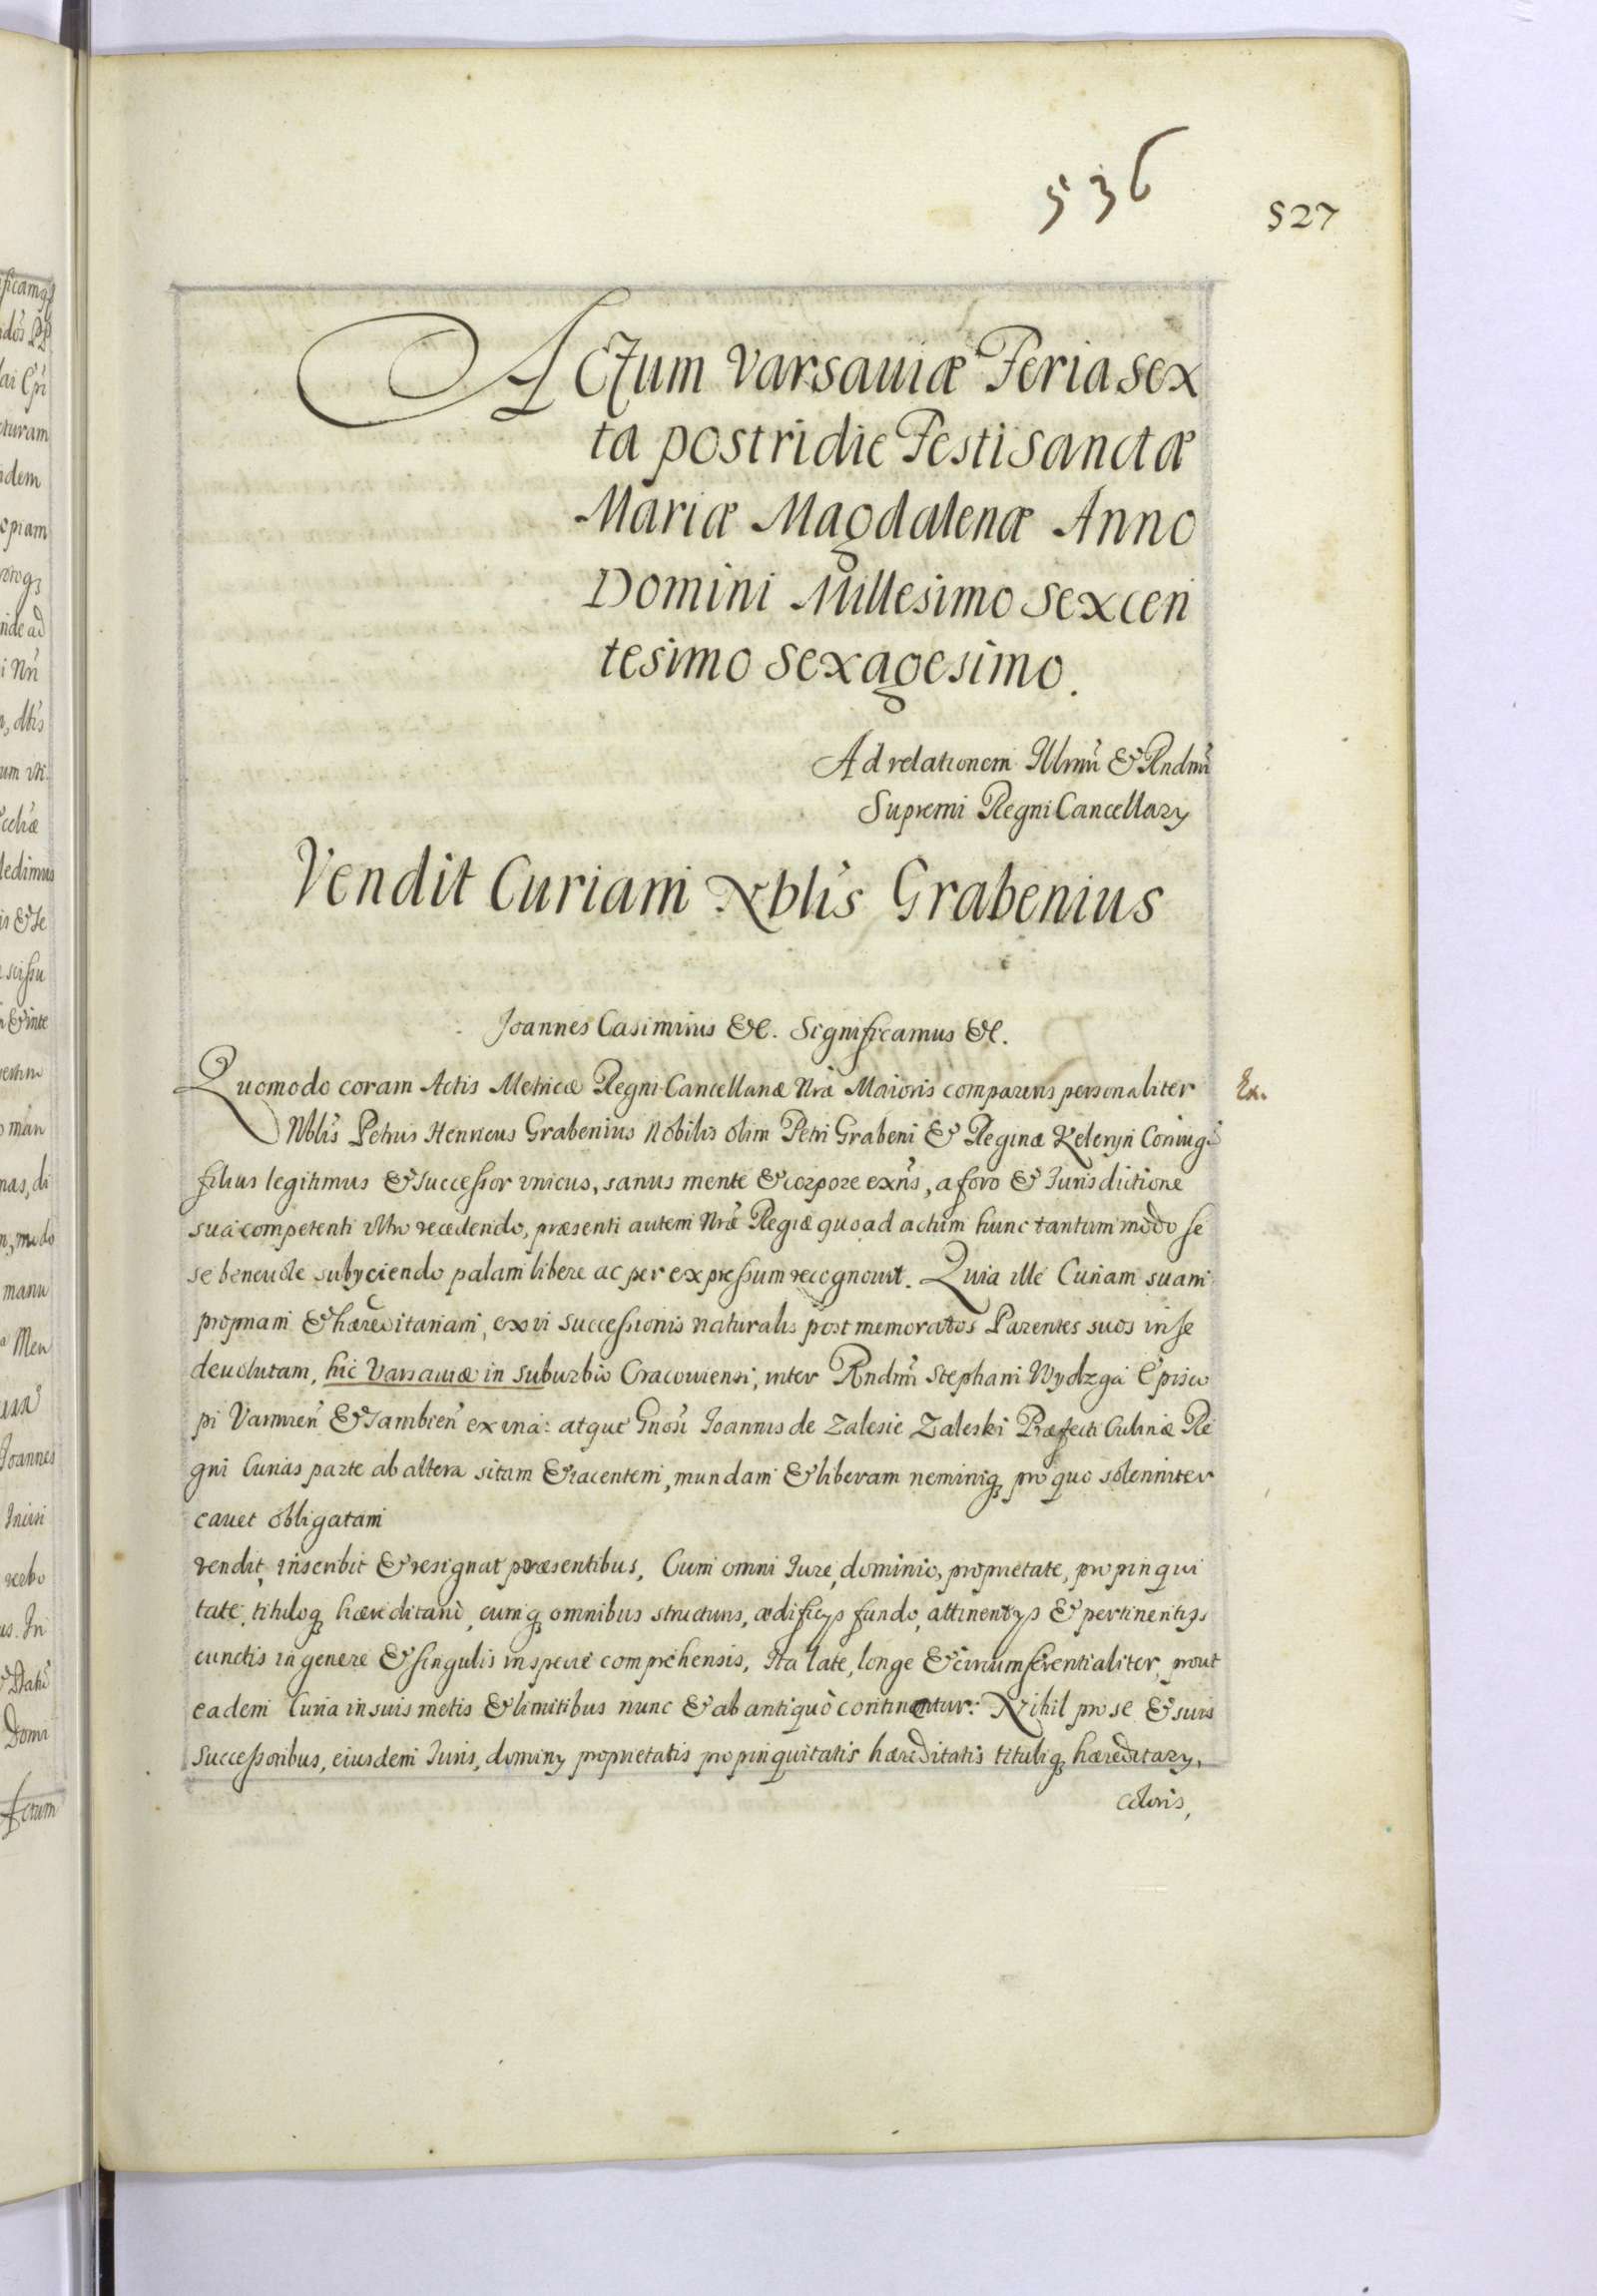 536
527
Actum Varsauiæ Feria sex
ta postridie Festi sanctæ
Mariæ Magdalenæ Anno
Domini Millesimo sexcen
tesimo sexagesimo.
Ad relationem Illrmi & Rndmi
Supremi Regni Cancellary
Vendit Curiam Nblis Grabenius
Joannes Casimirus &c. Significamus &c.
Quomodo coram Actis Metricæ Regni Cancellariæ Nræ Maioris comparens personaliter
Ex.
Nblis Petrus Henricus Grabenius Nobilis olim Petri Grabeni & Reginæ Keleryn Coniugũ
filius legitimus & successor vnicus, sanus mente & corpore exns, a foro & Jurisdictione
sua competenti vltro recedendo, præsenti autem Nræ Regiæ quo ad actum hunc tantummodo se
se beneuole subyciendo palam libere ac per expressum recognouit. Quia ille Curiam suam
propriam & hæreditariam, ex vi successionis naturalis post memoratos Parentes suos in se
deuolutam, hic Varsauiæ in suburbio Cracouiensi, inter Rndmi Stephani Wydzga Episco
pi Varmien & Sambien ex vna: atque Gnosi Joannis de Zalesie Zaleski Præfecti Culinæ Re
gni Curias parte ab altera sitam & iacentem, mundam & liberam neminiq pro quo solenniter
cauet obligatam
vendit, inscribit & resignat præsentibus, Cum omni Jure, dominio, proprietate, propinqui
tate, tituloq hæreditario, cumq omnibus structuris, ædificys fundo, attinentys & pertinentys
cunctis in genere & singulis in specie comprehensis, Ita late, longe & circumferentialiter, prout
eadem Curia in suis metis & limitibus nunc & ab antiquo continentur: Nihil pro se & suis
successoribus, eiusdem Juris, dominy proprietatis propinquitatis hæreditatis tituliq hæreditary,